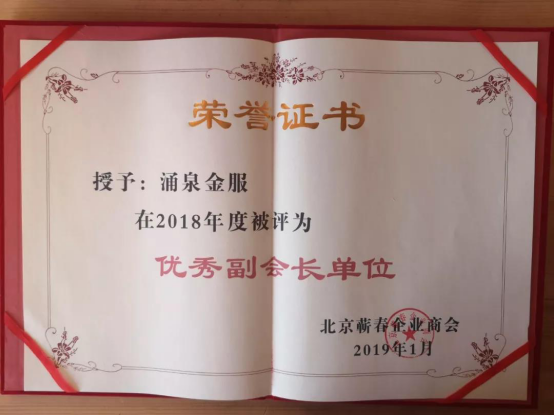 荣誉证书
授予：涌泉金服
在2018年度被评为
优秀副会长单位
北京蕲春企业商会
2019年1月